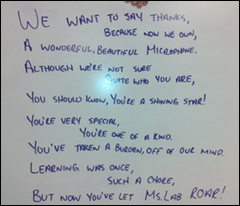 We want to say thanks,
Because now we own,
A wonderful, beautiful Microphone.
Although we're not sure
Quite who you are,
You should know, you're a shining star!
You're very special,
You're one of a kind.
You've taken a burden, off of our mind.
Learning was once,
Such a chore,
But now you've let Ms. Lab ROAR!